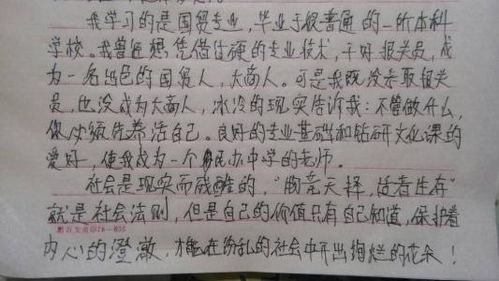 我学习的是国贸专业，毕业于很普通的一所本科
学校。我曾想凭借过硬的专业技术，干好报关员，成
为一名出色的国贸人，大商人。可是我既没考取报关
员，也没成为大商人，冰冷的现实告诉我：不管做什么，
你必须先养活自己。良好的专业基础和钻研文化课的
爱好，使我成为一个民办中学的老师。
社会是现实而残酷的，"物竞天择，适者生存"
就是社会法则，但是自己的价值只有自己知道，保护着
内心的澄澈，才能在纷乱的社会中开出绚烂的花朵！